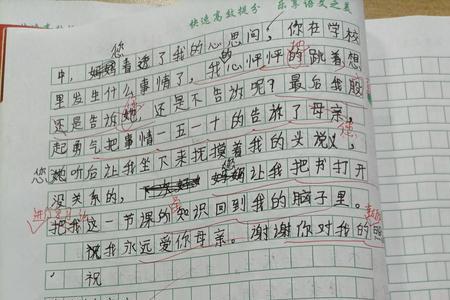 快速高效提分 乐享语文之美
您
中,看透了我的心思问:你在学校
里发生什么事情了,我的心怦怦的跳着想
还是告诉您,还是不告诉呢?最后我鼓
起勇气把事情一五一十的告诉了母亲,
您听后让我坐下来抚摸着我的头说,
没关系的,您让我把书打开
把我这一节课的知识回到我的脑子里。
我永远爱你母亲。谢谢你对我的
祝